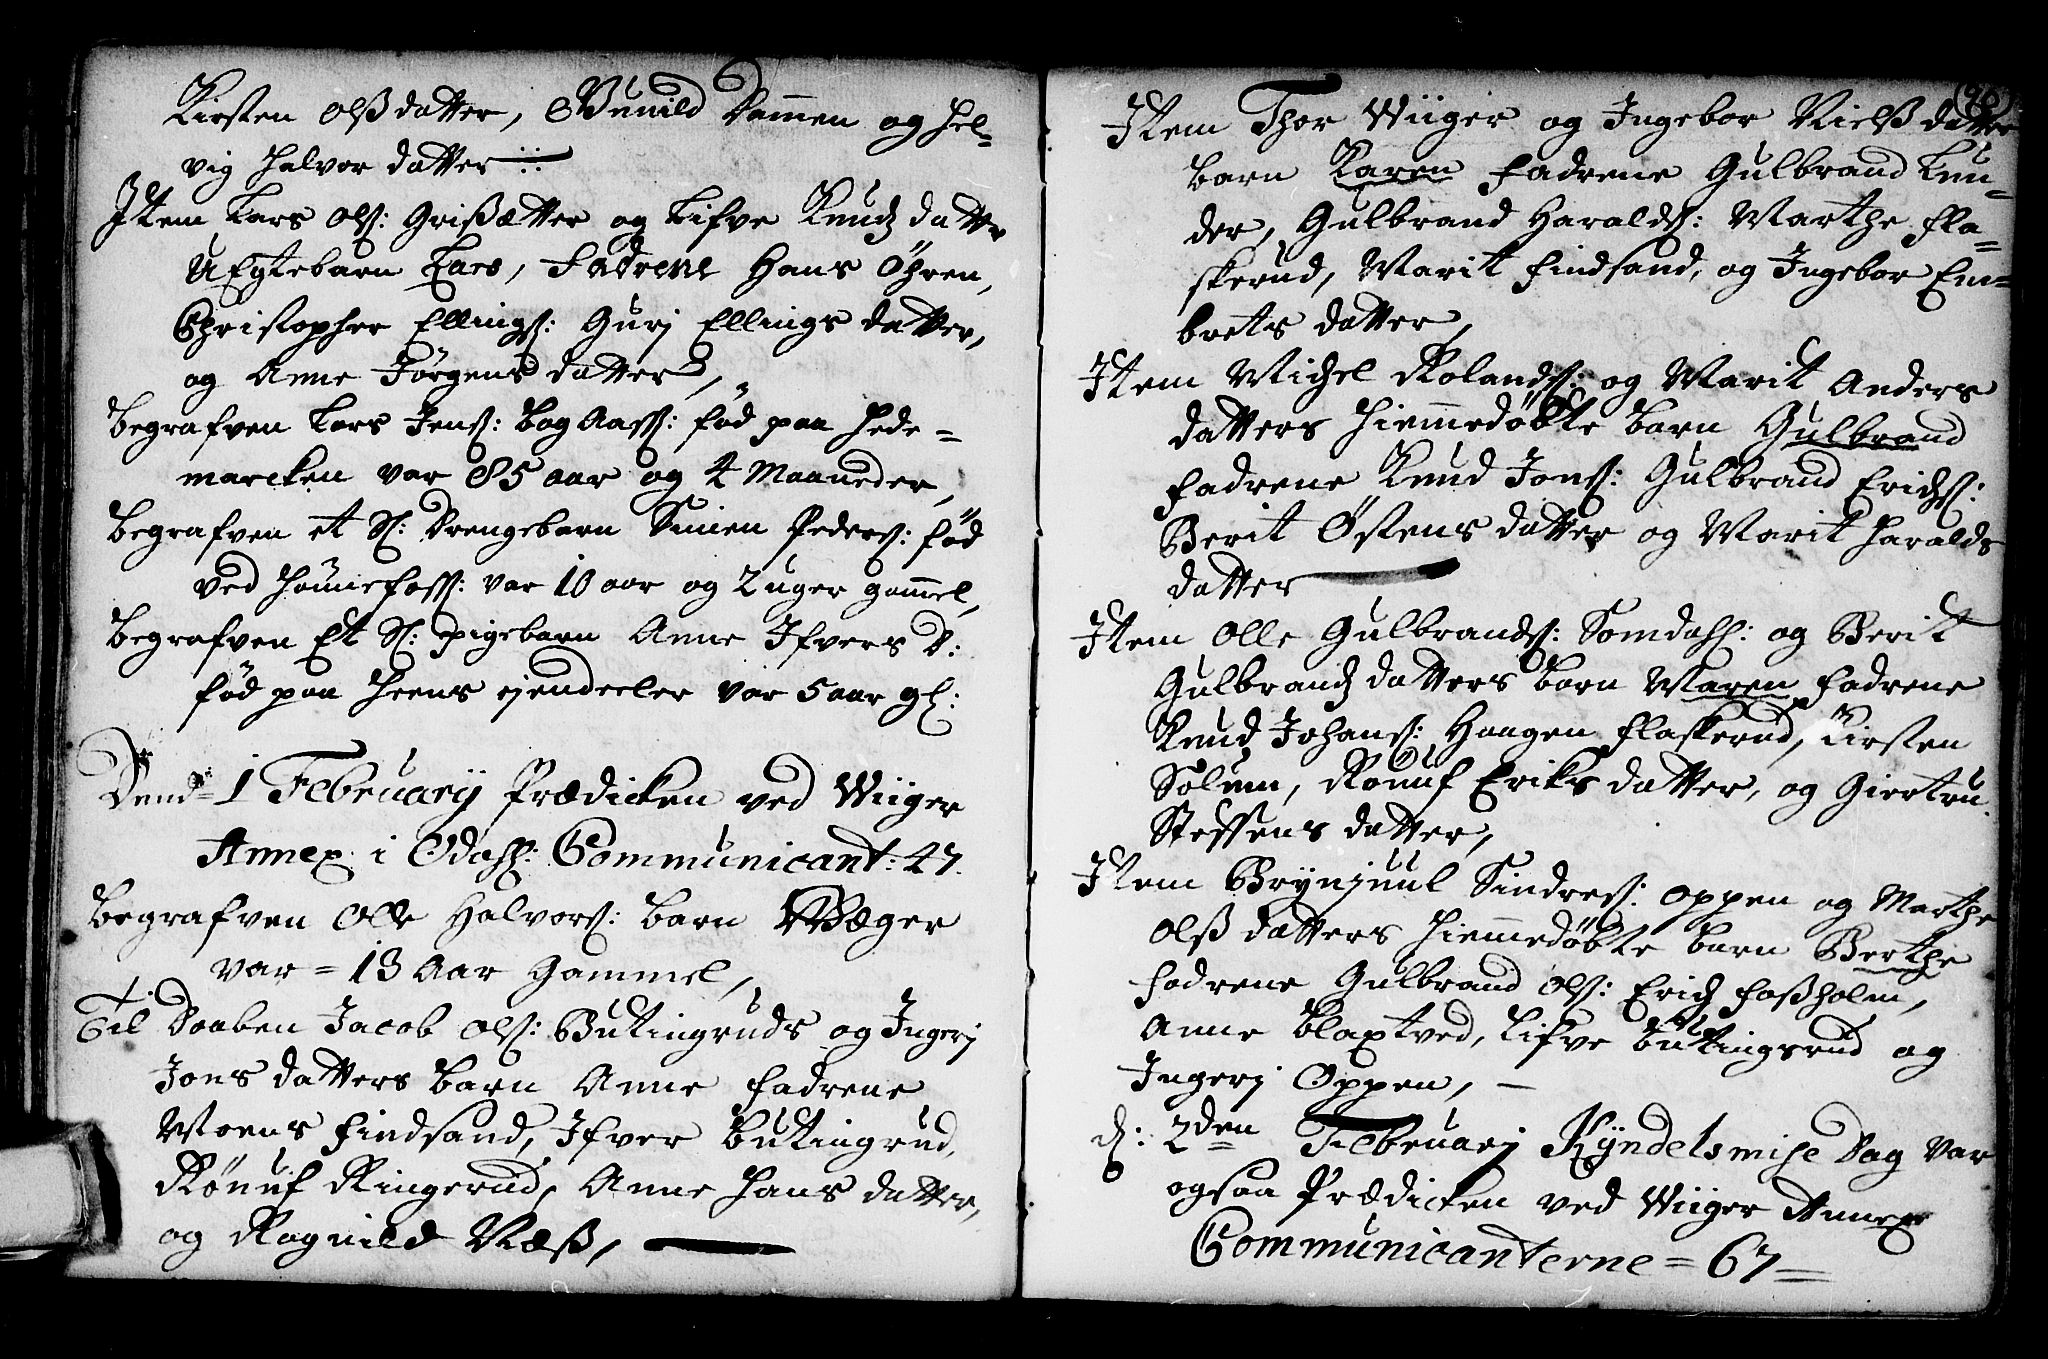 Kirsten Olß datter, Gunild Dammen og Hel-
vig Halvor datter
Item Lars Ols: Grißætter og Lifve Knudz datter
UEgtebarn Lars, Fadrene Hans Öhren,
Christopher Ellings: Gurj Ellings datter,
og Anne Jörgens datter,
Begrafven Lars Jens: Bag Aass: föd paa Hede-
marcken var 85 aar og 4 Maaneder,
Begrafven et Sl: Drengebarn Simen Peders: föd
ved Hönnefoss: var 10 aar og 2 uger gammel,
Begrafven Et Sl: pigebarn Anne Ifvers D:
föd paa Heens ejendeeler var 5 aar gl:
Dend 1 Februarij Prædicken ved Wiiger
Annex i Odahl: Communicant: 47.
Begrafven Olle Halvors: barn Wæger
var = 13 Aar Gammel,
Til Daaben Jacob Ols: Butingruds og Ingerj
Jons datters barn Anne Fadrene
Moens Findsand, Ifver Butingrud,
Rönnuf Ringerud, Anne Hans datter,
og Ragnild Næß,
(96)
Item Thor Wiiger og Ingebor Nielß datter
barn Karen Fadrene Gulbrand Lun-
der, Gulbrand Haralds: Marthe Fla-
skerud, Marit Findsand, og Ingebor Em-
brets datter,
Item Michel Rolands: og Marit Anders
datters hiemmedöbte barn Gulbrand
Fadrene Knud Jons: Gulbrand Erichs:
Berit Östens datter og Marit Haralds
datter
Item Olle Gulbrands: Somdahl: og Berit
Gulbrandz datters barn Maren, Fadrene
Knud Johans: Haagen Flaskerud, Kirsten
Solum, Rönnuf Eriks datter, og Giertru
Steffens datter,
Item Brynjuul Sindres: Oppen og Marthe
Olß datters hiemmedöbte barn Berthe
Fadrene Gulbrand Ols: Erich Foßholm,
Anne Blaxtved, Lifve Butingsrud og
Ingerj Oppen,
d: 2den Februarj Kÿndelsmise Dag var
ogsaa Prædicken ved Wiiger Annex
Communicanterne = 67